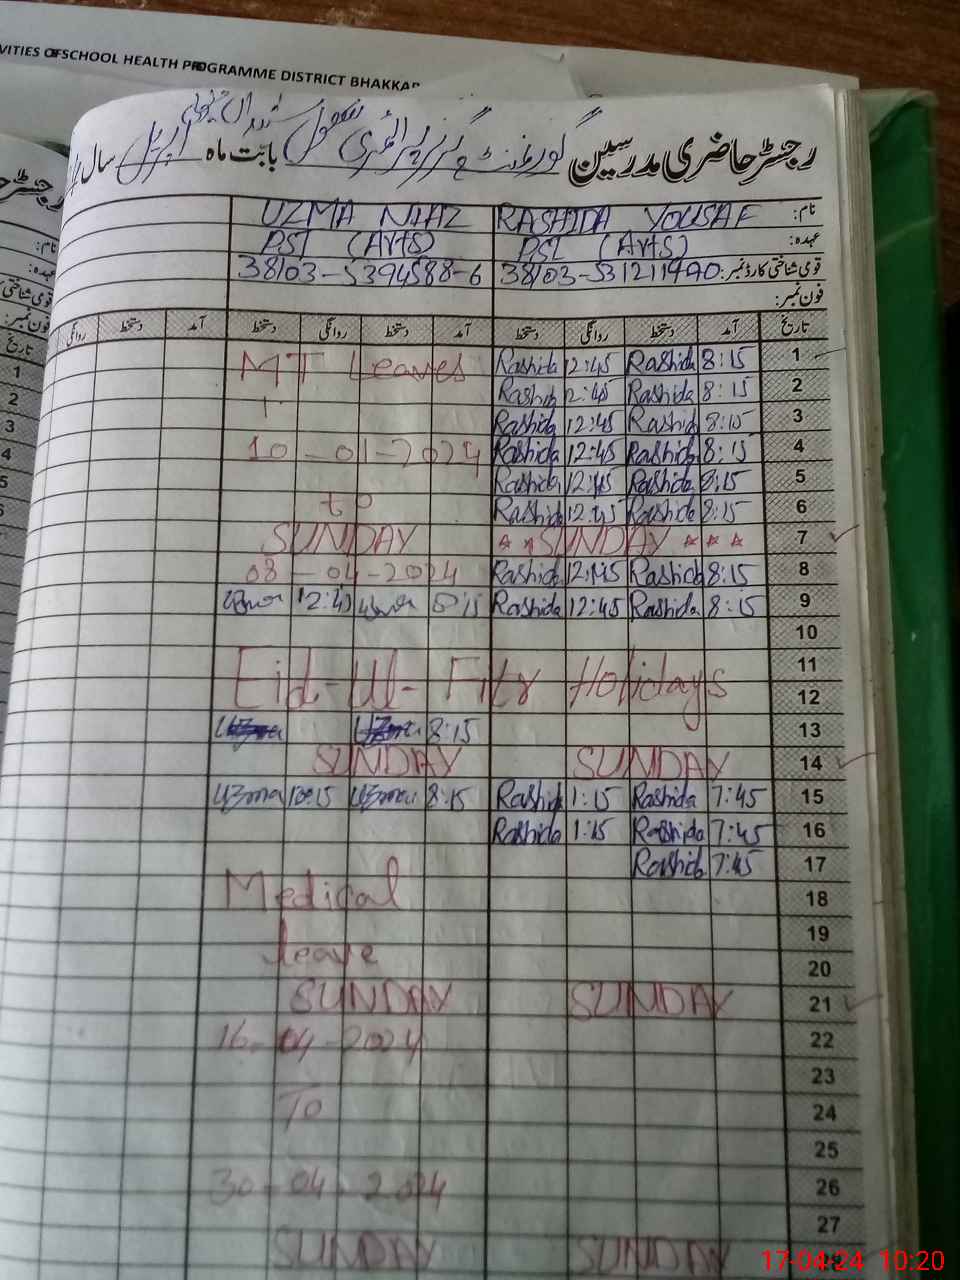 VITIES OF SCHOOL HEALTH PROGRAMME DISTRICT BHAKKAR
رجسٹر حاضری مدرسین گورنمنٹ گرلز پرائمری سکول بابت ماہ اپریل سال
نام: RASHIDA YOUSAF UZMA NIAZ
عہدہ: PST (Arts) PST (Arts)
قومی شناختی کارڈ نمبر: 38103-5394588-6
فون نمبر:
تاریخ آمد دستخط روانگی دستخط آمد دستخط روانگی دستخط آمد دستخط روانگی
MT Leaves Rashida 12:45 Rashida 8:15 1
Rashida 12:45 Rashida 8:15 2
Rashida 12:45 Rashida 8:15 3
10-01-2024 Rashida 12:45 Rashida 8:15 4
Rashida 12:45 Rashida 8:15 5
to Rashida 12:45 Rashida 8:15 6
SUNDAY SUNDAY 7
08-04-2024 Rashida 12:45 Rashida 8:15 8
Rashida 12:45 Rashida 8:15 9
10
Eid-Ul-Fitr Holidays 11
12
8:15 13
SUNDAY SUNDAY 14
Uzma Uzma 8:15 Rashida 1:15 Rashida 7:45 15
Rashida 1:15 Rashida 7:45 16
Rashida 7:45 17
Medical 18
19
leave 20
SUNDAY SUNDAY 21
16-04-2024 22
23
To 24
25
30-04-2024 26
27
SUNDAY SUNDAY
17-04-24 10:20